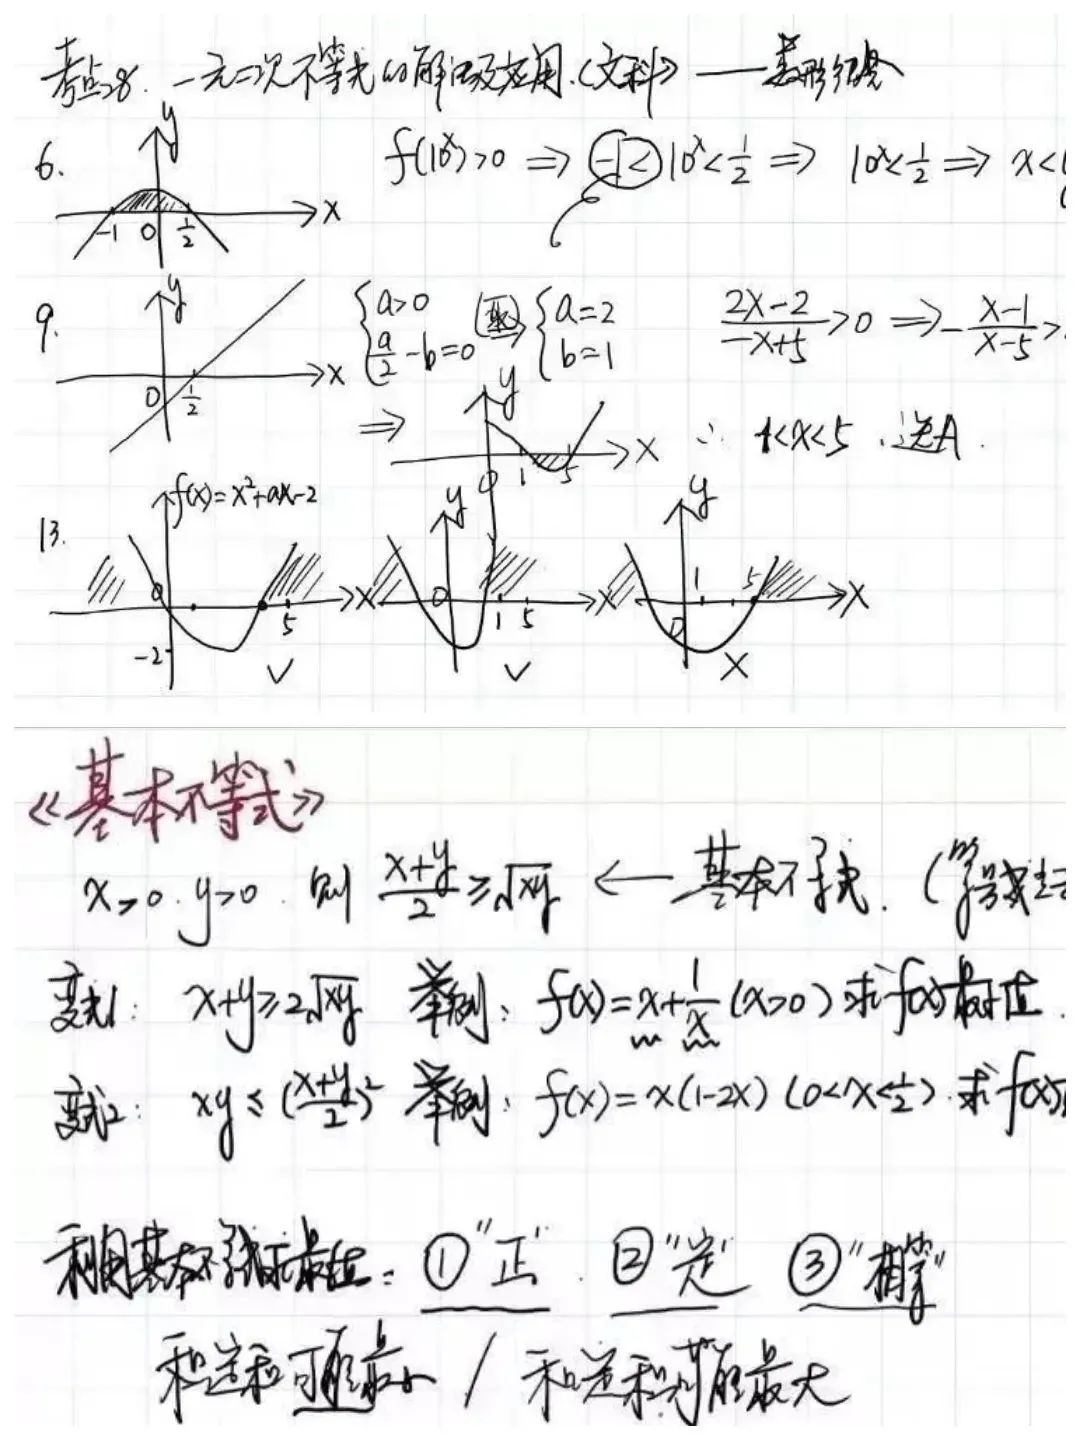 考点28. 一元二次不等式的解法及应用.(文科) ——
6. y x -1 0 1/2 f(10^x)>0 ⇒ -1<10^x<1/2 ⇒ 10^x<1/2 ⇒ x<
9. y x 0 1/2 { a>0 a/2-b=0 { a=2 b=1 (2x-2)/(-x+5)>0 ⇒ -(x-1)/(x-5)>
⇒ y x 0 1 5 ∴ 1<x<5 . 选A.
13. f(x)=x²+ax-2 0 5 -2 x √ y 0 1 5 x √ y 0 1 5 x ×
《基本不等式》
x>0. y>0. 则 (x+y)/2≥√xy ← 基本不等式. (等号成立
变式1: x+y≥2√xy 举例: f(x)=x+1/x (x>0) 求f(x)最值.
变式2: xy≤((x+y)/2)² 举例: f(x)=x(1-2x) (0<x<1/2). 求f(x)
利用基本不等式求最值: ①"正". ②"定" ③"相等"
和 可能最小 / 和定积可能最大